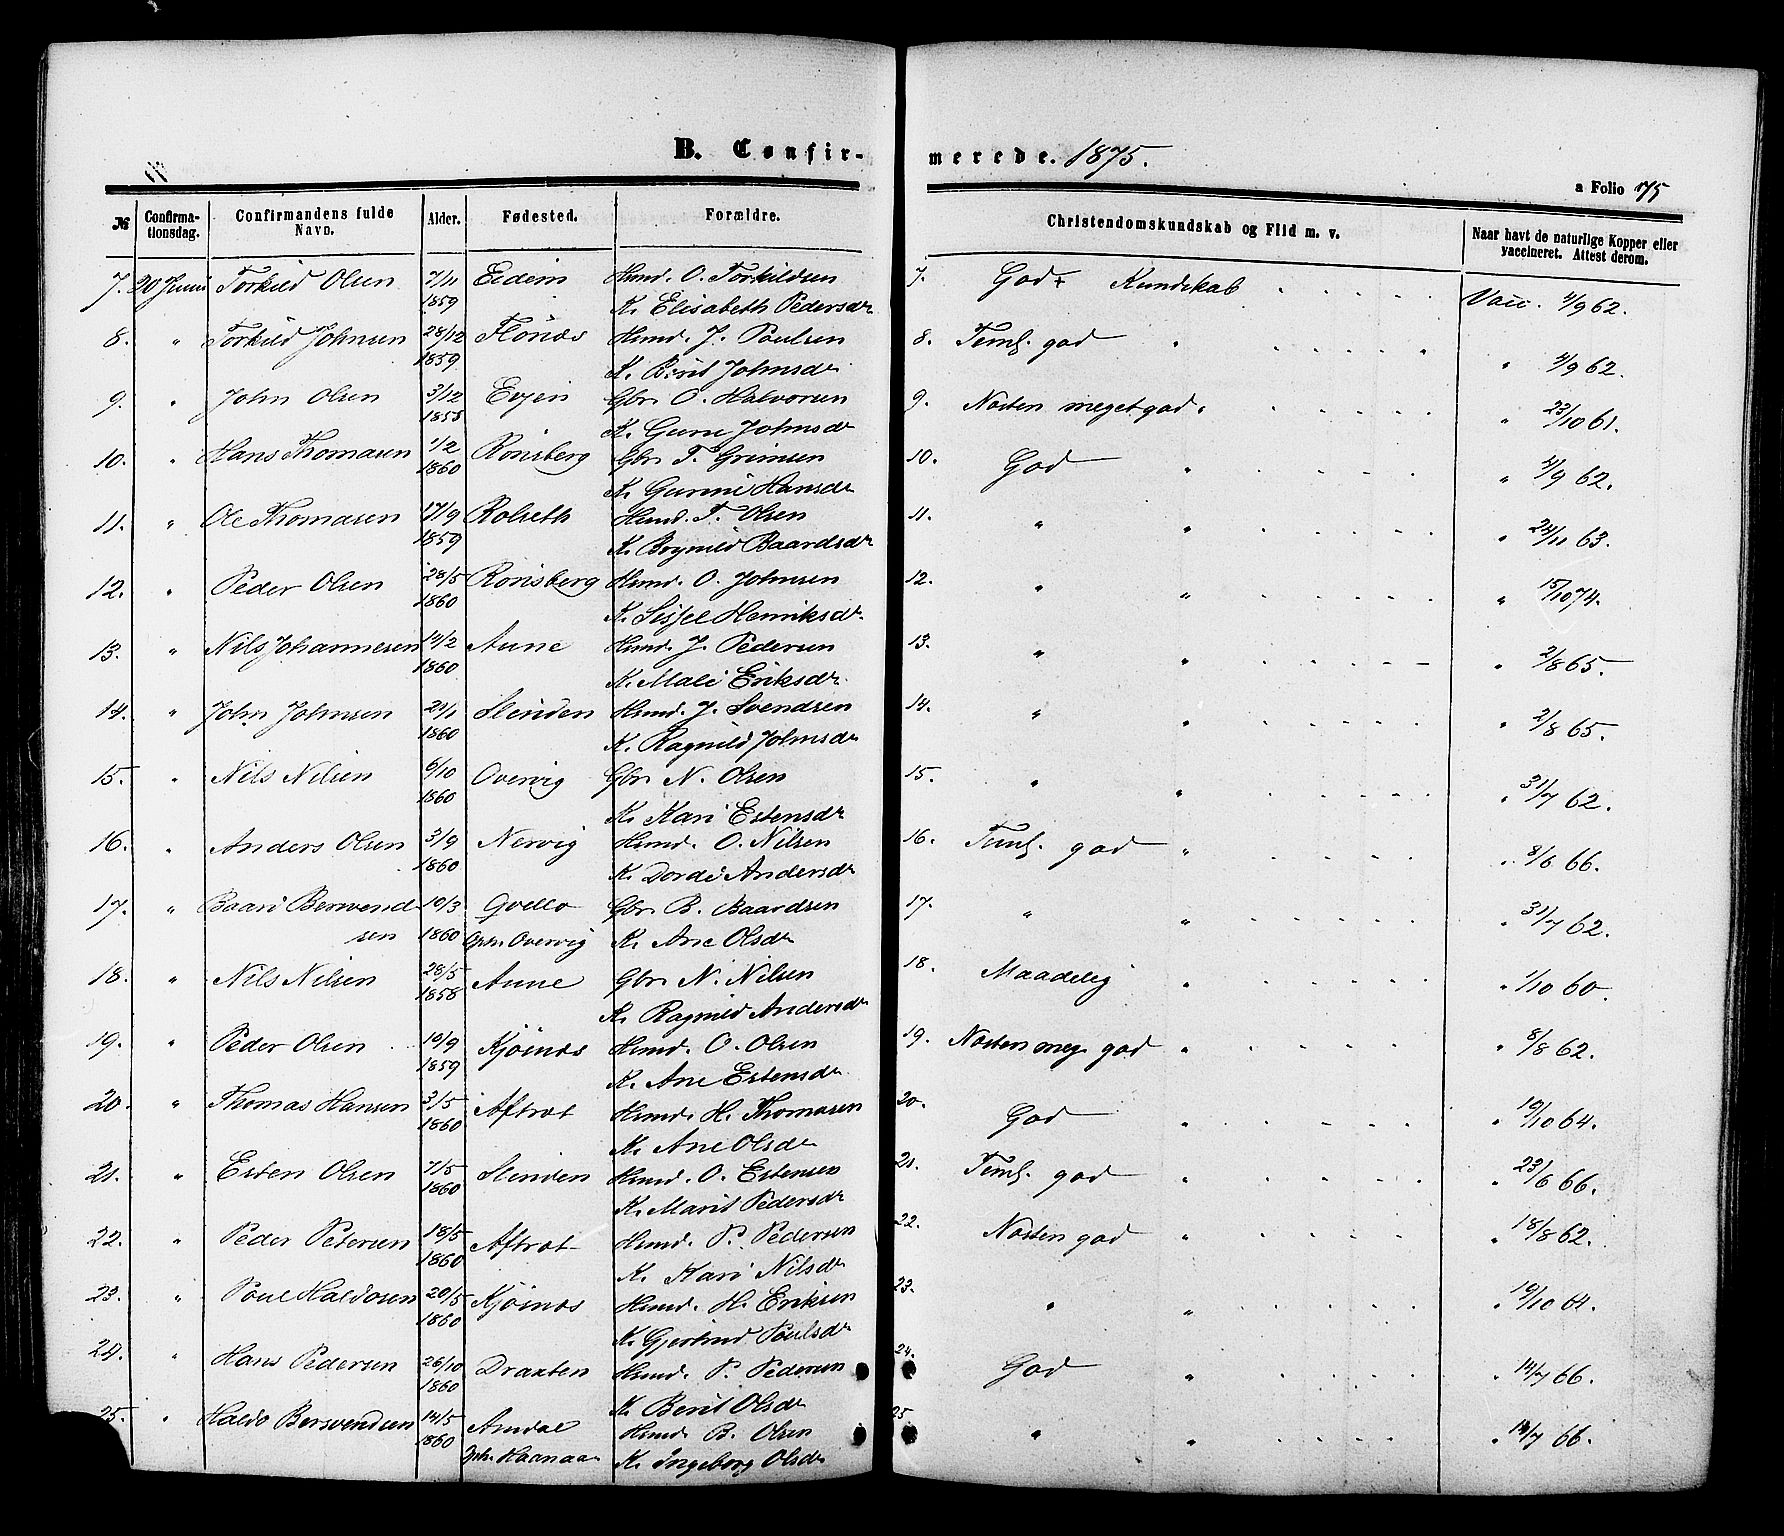 B. Confir-
merede. 1875.
a Folio 175
№ Confirma-tionsdag. Confirmandens fulde Navn. Alder. Fødested. Forældre. Christendomskundskab og Flid m. v. Naar havt de naturlige Kopper eller vaccineret. Attest derom.
7. 20 Juni Torkild Olsen 7/11 Eidem Husmd. O. Torkildsen 7. God + Kundskab Vacc. 4/9 62.
1859 K. Elisabeth Pedersdr
8. " Torkild Johnsen 28/12 Flönæs Husmd. J. Paulsen 8. Teml. god " " 4/9 62.
1859 K. Berit Johnsdr
9. " John Olsen 3/12 Evjen Gbr. O. Halvorsen 9. Næsten meget god " " 23/10 61.
1858 K. Guru Johnsdr
10. " Hans Thomasen 1/2 Rönsberg Gbr. T. Grimsen 10. God " " 4/9 62.
1860 K. Gurine Hansdr
11. " Ole Thomasen 17/9 Rolseth Husmd. T. Olsen 11. " " " 24/11 63.
1859 K. Brynild Baardsdr
12. " Peder Olsen 28/5 Rönsberg Husmd. O. Johnsen 12. " " " 15/10 74.
1860 K. Sissel Henriksdr.
13. " Nils Johannesen 14/2 Aune Husmd. J. Pedersen 13. " " " 2/8 65.
1860 K. Mali Eriksdr.
14. " John Johnsen 24/1 Slinden Husmd. J. Svendsen 14. " " " 2/8 65.
1860 K. Ragnild Johnsdr
15. " Nils Nilsen 6/10 Overvig Gbr. N. Olsen 15. " " " 31/7 62.
1860 K. Kari Estensdr
16. " Anders Olsen 3/9 Nervig Husmd. O. Nilsen 16. Teml. god " " 8/6 66.
1860 K. Dordi Andersdr
17. " Baard Bersvend- 10/3 Qvello Gbr. B. Baardsen 17. " " " 31/7 62.
sen 1860 Opho. Overvig K. Ane Olsdr
18. " Nils Nilsen 28/5 Aune Gbr. N. Nilsen 18. Maadelig " " 1/10 60.
1858 K. Ragnild Andersdr
19. " Peder Olsen 10/9 Kjösnæs Husmd. O. Olsen 19. Næsten meg. god " " 8/8 62.
1859 K. Ane Estensdr.
20. " Thomas Hansen 3/5 Aftret Husmd. H. Thomasen 20. God " " 19/10 64.
1860 K. Ane Olsdr
21. " Esten Olsen 7/5 Slinden Husmd. O. Estensen 21. Teml. god " " 23/6 66.
1860 K. Marit Pedersdr
22. " Peder Petersen 18/5 Aftret Husmd. P. Pedersen 22. Næsten god " " 18/8 62.
1860 K. Kari Nilsdr
23. " Poul Haldosen 20/5 Kjösnæs Husmd. H. Eriksen 23. " " " 19/10 64.
1860 K. Gjertrud Paulsdr
24. " Hans Pedersen 26/10 Draxten Husmd. P. Pedersen 24. God " " 14/7 66.
1860 K. Berit Olsdr
25. " Haldo Bersvendsen 14/5 Amdal Husmd. B. Olsen 25 " " " 14/7 66.
1860 Opho. Haanaa K. Ingeborg Olsdr